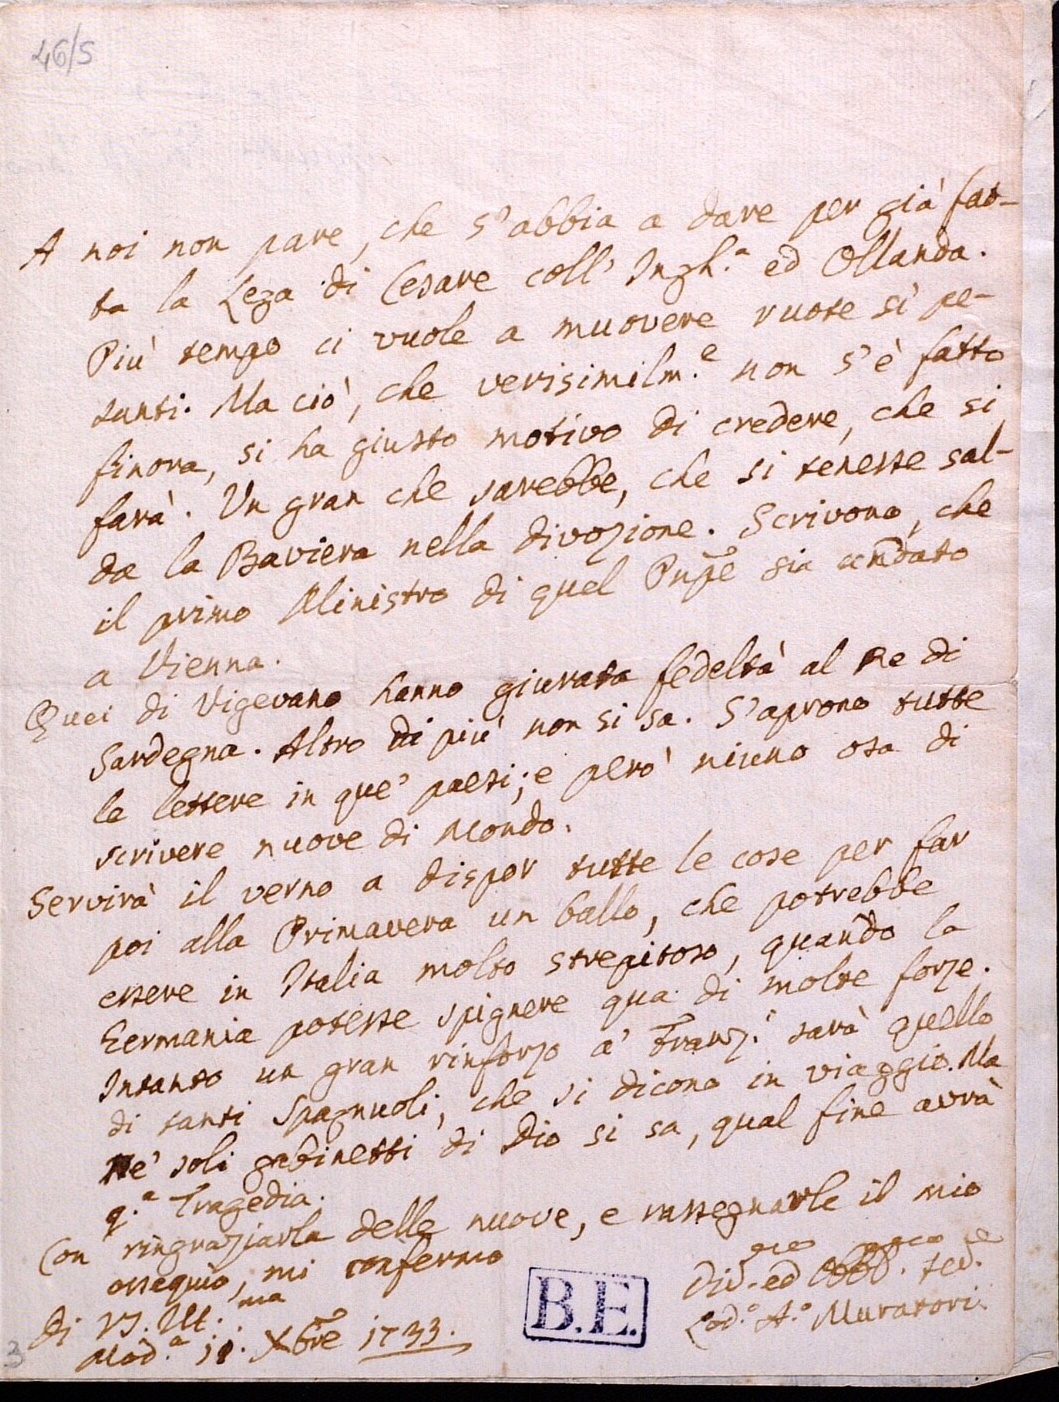 46/5
A noi non pare, che s'abbia a dare per già fat-
ta la Lega di Cesare coll' Ingh.ª ed Ollanda.
Più tempo ci vuole a muovere ruote sì pe-
santi. Ma ciò, che verisimilm.e non s'è fatto
finora, si ha giusto motivo di credere, che si
farà. Un gran che sarebbe, che si tenesse sal-
da la Baviera nella divozione. Scrivono, che
il primo Ministro di quel Pnpe sia andato
a Vienna.
Quei di Vigevano hanno giurata fedeltà al Re di
Sardegna. Altro di più non si sa. S'aprono tutte
le lettere in que' paesi; e però niuno osa di
scrivere nuove di Mondo.
Servirà il verno a dispor tutte le cose per far
poi alla Primavera un ballo, che potrebbe
essere in Italia molto strepitoso, quando la
Germania potesse spignere qua di molte forze.
Intanto un gran rinforzo a' Franz.i sarà quello
di tanti Spagnuoli, che si dicono in viaggio. Ma
ne' soli gabinetti di Dio si sa, qual fine avrà
q.ª Tragedia.
Con ringraziarla delle nuove, e rassegnarle il mio
ossequio, mi confermo
Di V.S. Ill.ma
Mod.ª 11. Xbre 1733.
Div.mo ed Obb.mo ser.e
Lod.º A.º Muratori.
B.E.
3